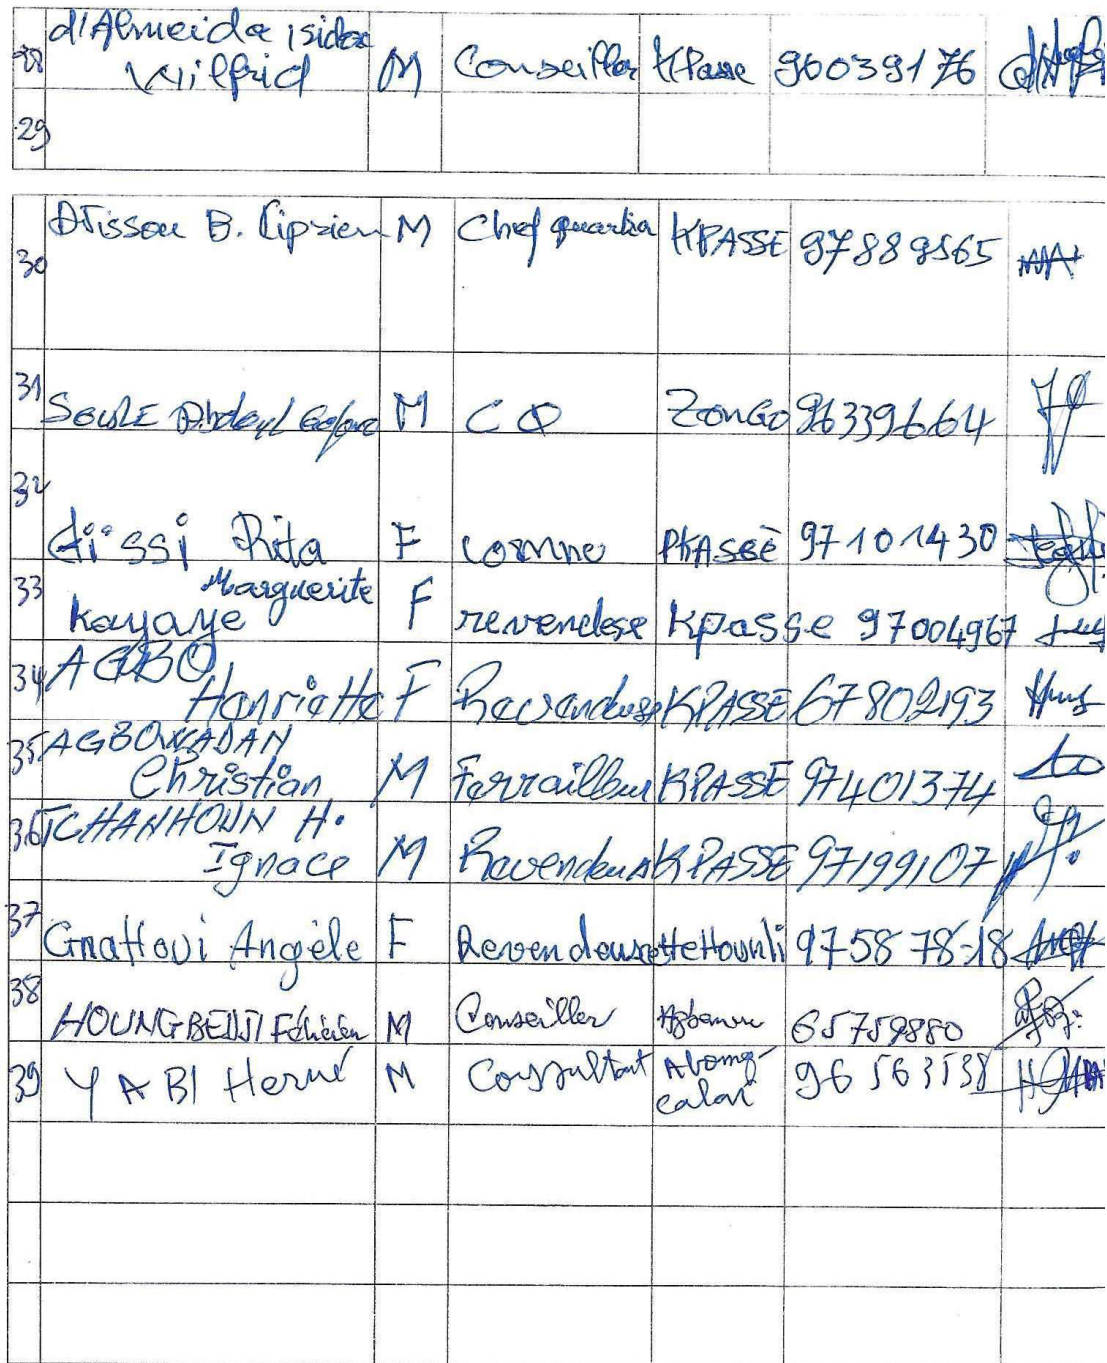 28 d'Almeida Isidore
Wilfrid M Conseiller KPasse 96039176
29
30 B. Ciprien M Chef quartier KPASSE 97889565
31 SOULE M C Q ZONGO 96339664
32 Aïssi Rita F PKASSÈ 97101430
33 Kayaye Marguerite F revendese Kpasse 97004967
34 AGBO
Henriette F Revendeuse KPASSE 67802193
35 AGBOWADAN
Christian M Ferrailleur KPASSE 97401374
36 TCHANHOUN H.
Ignace M Revendeur KPASSE 97199107
37 Gnattovi Angèle F Revendeuse 975878-18
38 HOUNGBEDJI Félicien M Conseiller 65759880
39 YABI Hervé M Consultant Abomey-
calavi 96563538